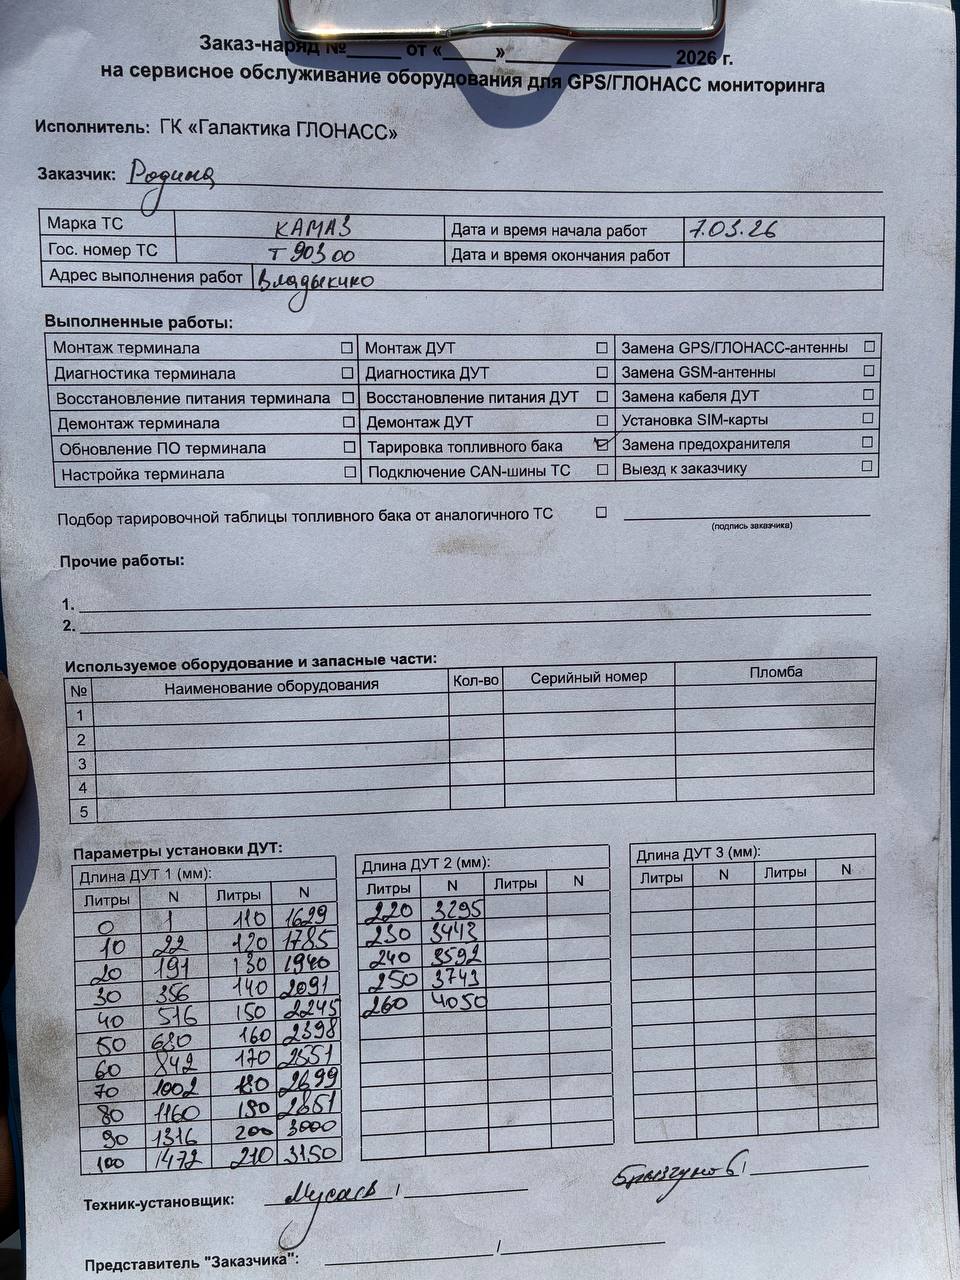 Заказ-наряд №_____ от «_____»_______________ 2026 г.
на сервисное обслуживание оборудования для GPS/ГЛОНАСС мониторинга
Исполнитель: ГК «Галактика ГЛОНАСС»
Заказчик: Родина
Марка ТС КАМАЗ Дата и время начала работ 7.03.26
Гос. номер ТС Т 903 00 Дата и время окончания работ
Адрес выполнения работ Владыкино
Выполненные работы:
Монтаж терминала ☐ Монтаж ДУТ ☐ Замена GPS/ГЛОНАСС-антенны ☐
Диагностика терминала ☐ Диагностика ДУТ ☐ Замена GSM-антенны ☐
Восстановление питания терминала ☐ Восстановление питания ДУТ ☐ Замена кабеля ДУТ ☐
Демонтаж терминала ☐ Демонтаж ДУТ ☐ Установка SIM-карты ☐
Обновление ПО терминала ☐ Тарировка топливного бака ☑ Замена предохранителя ☐
Настройка терминала ☐ Подключение CAN-шины ТС ☐ Выезд к заказчику ☐
Подбор тарировочной таблицы топливного бака от аналогичного ТС ☐
(подпись заказчика)
Прочие работы:
1.
2.
Используемое оборудование и запасные части:
№ Наименование оборудования Кол-во Серийный номер Пломба
1
2
3
4
5
Параметры установки ДУТ:
Длина ДУТ 1 (мм): Длина ДУТ 2 (мм): Длина ДУТ 3 (мм):
Литры N Литры N Литры N Литры N Литры N Литры N
0 1 110 1629 220 3295
10 22 120 1785 230 3443
20 191 130 1940 240 3592
30 356 140 2091 250 3743
40 516 150 2245 260 4050
50 680 160 2398
60 842 170 2551
70 1002 180 2699
80 1160 190 2851
90 1316 200 3000
100 1472 210 3150
Техник-установщик: Мусаев / Брызгунов /
Представитель "Заказчика": /